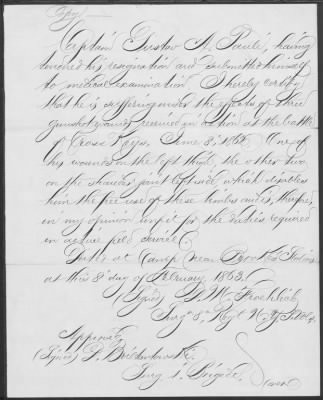 Copy
Captain Gustav A. Paulé, having
tendered his resignation and submitted himself
to medical examination I hereby certify
that he is suffering under the effects of three
gunshot wounds received in action at the battle
of Cross Keys, June 8th 1862. One of
his wounds on the left thumb, the other two
on the shoulder joint left side, which disables
him the free use of these limbs and is, therefore,
in my opinion unfit for the duties required
in active field service.
Dated at Camp near
at this 8th day of February 1863.
(Signed)
Surg 8th Regt N.Y. Vols.
Approved
(Signed)
Surg 1st Brigade